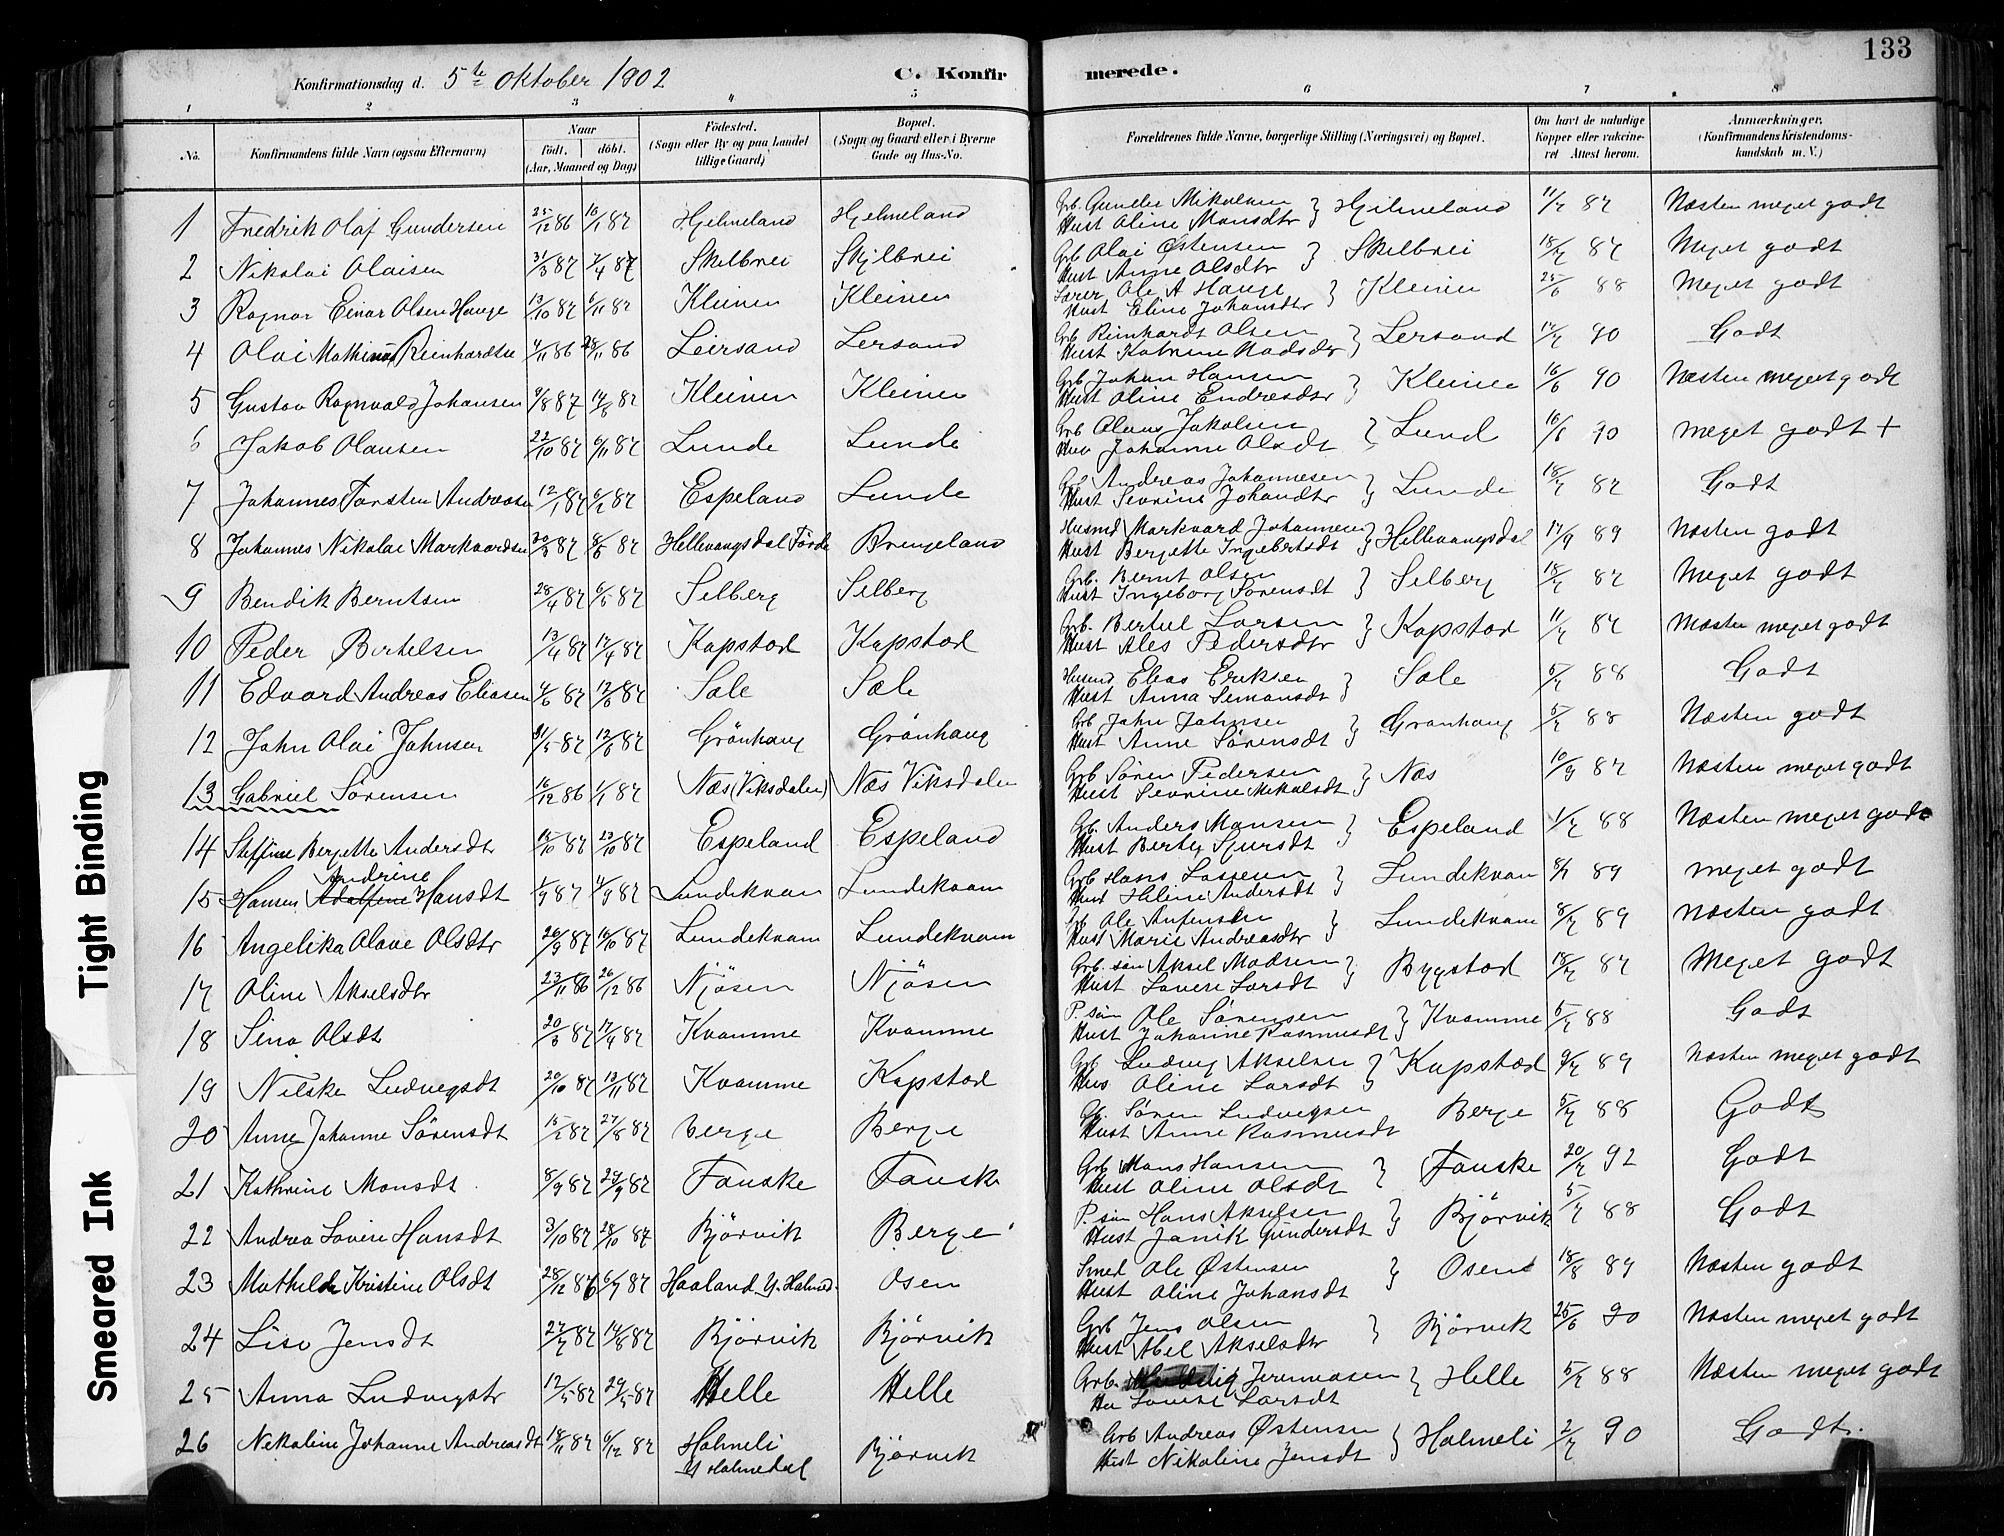 133
Konfirmationsdag d. 5te Oktober 1902 C. Konfirmerede.
1 2 3 4 5 6 7 8
No. Konfirmandens fulde Navn (ogsaa Efternavn) Naar født. døbt. (Aar, Maaned og Dag) Födested. (Sogn eller By og paa Landet tillige Gaard) Bopæl. (Sogn og Gaard eller i Byerne Gade og Hus-No. Forældrenes fulde Navne, borgerlige Stilling (Næringsvei) og Bopæl. Om havt de naturlige Kopper eller vakcineret Attest herom. Anmærkninger. (Konfirmandens Kristendomskundskab m. V.)
1 Fredrik Olaf Gundersen 25/12 86 16/1 87 Hjelmeland Hjelmeland Grb. Gunder Mikalsen Hust Oline Monsdtr } Hjelmeland 11/7 87 Næsten meget godt
2 Nikolai Olaisen 31/3 87 7/4 87 Skilbrei Skjlbrei Grb Olai Østensen Hust Anne Olsdtr } Skelbrei 18/7 87 Meget godt
3 Ragnar Einar Olsen Hauge 13/10 87 6/11 87 Kleiven Kleiven Lærer Ole A Hauge Hust Eline Johansdtr } Kleiven 25/6 88 Meget godt
4 Olai Mathias Reinhardtsen 4/11 86 28/11 86 Leirsand Lersand Grb Reinhardt Olsen Hust Katrine Madsdtr } Lersand 17/7 90 Godt
5 Gustav Ragnvald Johansen 9/8 87 14/8 87 Kleiven Kleiven Grb Johan Hansen Hust Oline Endresdtr } Kleiven 16/6 90 Næsten meget godt
6 Jakob Olausen 22/10 87 6/11 87 Lunde Lunde Grb Olaus Jakobsen Hus Johanne Olsdt } Lund 16/6 90 meget godt +
7 Johannes Torsten Andreasen 12/1 87 6/2 87 Espeland Lunde Grb Andreas Johannesen Hust Sevrine Johandtr } Lunde 18/7 87 Godt
8 Johannes Nikolai Markvardsen 20/3 87 8/5 87 Hellevangsdal Førde Brengeland Husmd Markvard Johannesen Hust Bergette Ingebertsdt } Hellevangsdal 17/9 89 Næsten godt
9 Bendik Berntsen 28/4 87 6/5 87 Selberg Selberg Grb. Bernt Olsen Hust Ingeborg Sørensdt } Selberg 18/7 87 Meget godt
10 Peder Bertelsen 13/4 87 17/4 87 Kapstad Kapstad Grb. Bertel Larsen Hust Ales Pedersdtr } Kapstad 11/7 87 Næsten meget godt
11 Edvard Andreas Eliasen 4/6 87 12/6 87 Sæle Sæle Husmd Elias Eriksen Hust Anna Semansdt } Sæle 5/7 88 Godt
12 John Olai Johnsen 31/5 87 12/6 87 Grønhaug Grønhaug Grb John Johnsen Hust Anne Sørensdt } Grønhaug 5/7 88 Næsten godt
13 Gabriel Sørensen 16/12 86 1/1 87 Næs (Viksdalen) Næs Viksdalen Grb Søren Pedersen Hust Sevrine Mikalsdt } Næs 10/9 87 Næsten meget godt
14 Steffine Bergette Andersdtr 15/10 87 23/10 87 Espeland Espeland Grb. Anders Monsen Hust Berte Sjursdt } Espeland 1/7 88 Næsten meget godt
Andrine
15 Hansine Adolfine Hansdt 1/9 87 11/9 87 Lundekvam Lundekvam Grb Hans Lassesen Hust Heline Andersdt } Lundekvam 8/7 89 meget godt
16 Angelika Olave Olsdtr 26/9 87 16/10 87 Lundekvam Lundekvam Grb Ole Anfensen Hust Marie Andreasdtr } Lundekvam 8/7 89 Næsten godt
17 Oline Akselsdtr 23/11 86 26/12 86 Njøsen Njøsen Grb. søn Aksel Madsen Hust Lovise Larsdt } Bygstad 18/7 87 Meget godt
18 Sina Olsdt 20/3 87 17/4 87 Kvamme Kvamme P. søn Ole Sørensen Hust Johanne Rasmusdt } Kvamme 5/7 88 Godt
19 Nilske Ludvigsdt 20/10 87 13/11 87 Kvamme Kapstad Grb Ludvig Akselsen Hus Oline Larsdt } Kapstad 9/7 89 Næsten meget godt
20 Anne Johanne Sørensdt 15/2 87 27/8 87 Berge Berge Gb. Søren Ludvigsen Hust Anne Rasmusdt Berge 5/7 88 Godt
21 Kathrine Monsdt 8/9 87 29/9 87 Fauske Fauske Grb Mons Hansen Hust Oline Olsdt } Fauske 20/7 92 Godt
22 Andrea Lovise Hansdt 3/10 87 28/10 87 Bjørvik Berge P. søn Hans Akselsen Hust Janik Gundersdt } Bjørvik 5/7 88 Godt
23 Mathilde Kristine Olsdt 28/12 86 6/1 87 Haaland Y. Holmed. Osen Smed Ole Østensen Hust Oline Johansdt } Osen 18/8 89 Næsten godt
24 Lise Jensdt 27/7 87 14/8 87 Bjørvik Bjørvik Grb Jens Olsen Hust Abel Akselsdtr } Bjørvik 25/6 90 Næsten meget godt
25 Anna Ludvigsdtr 12/5 87 29/5 87 Helle Helle Grb. Jeremiasen Hu Lovise Larsdt } Helle 5/7 88 Næsten meget godt
26 Nekoline Johanne Andreasdt 18/11 87 6/12 87 Holmeli Y Holmedal Bjørvik Grb Andreas Østensen Hust Nikoline Jensdt } Holmeli 2/7 90 Godt.
Tight Binding
Smeared Ink